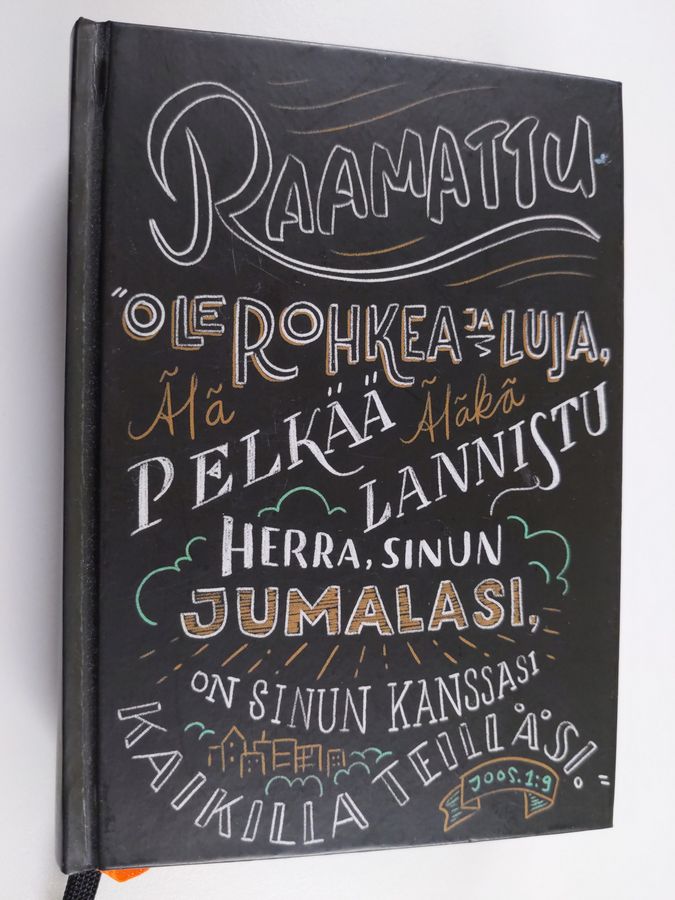 RAAMATTU
"OLE ROHKEA JA LUJA,
Älä PELKÄÄ Äläkä LANNISTU
HERRA, SINUN
JUMALASI,
ON SINUN KANSSASI
KAIKILLA TEILLÄSI."
JOOS. 1:9